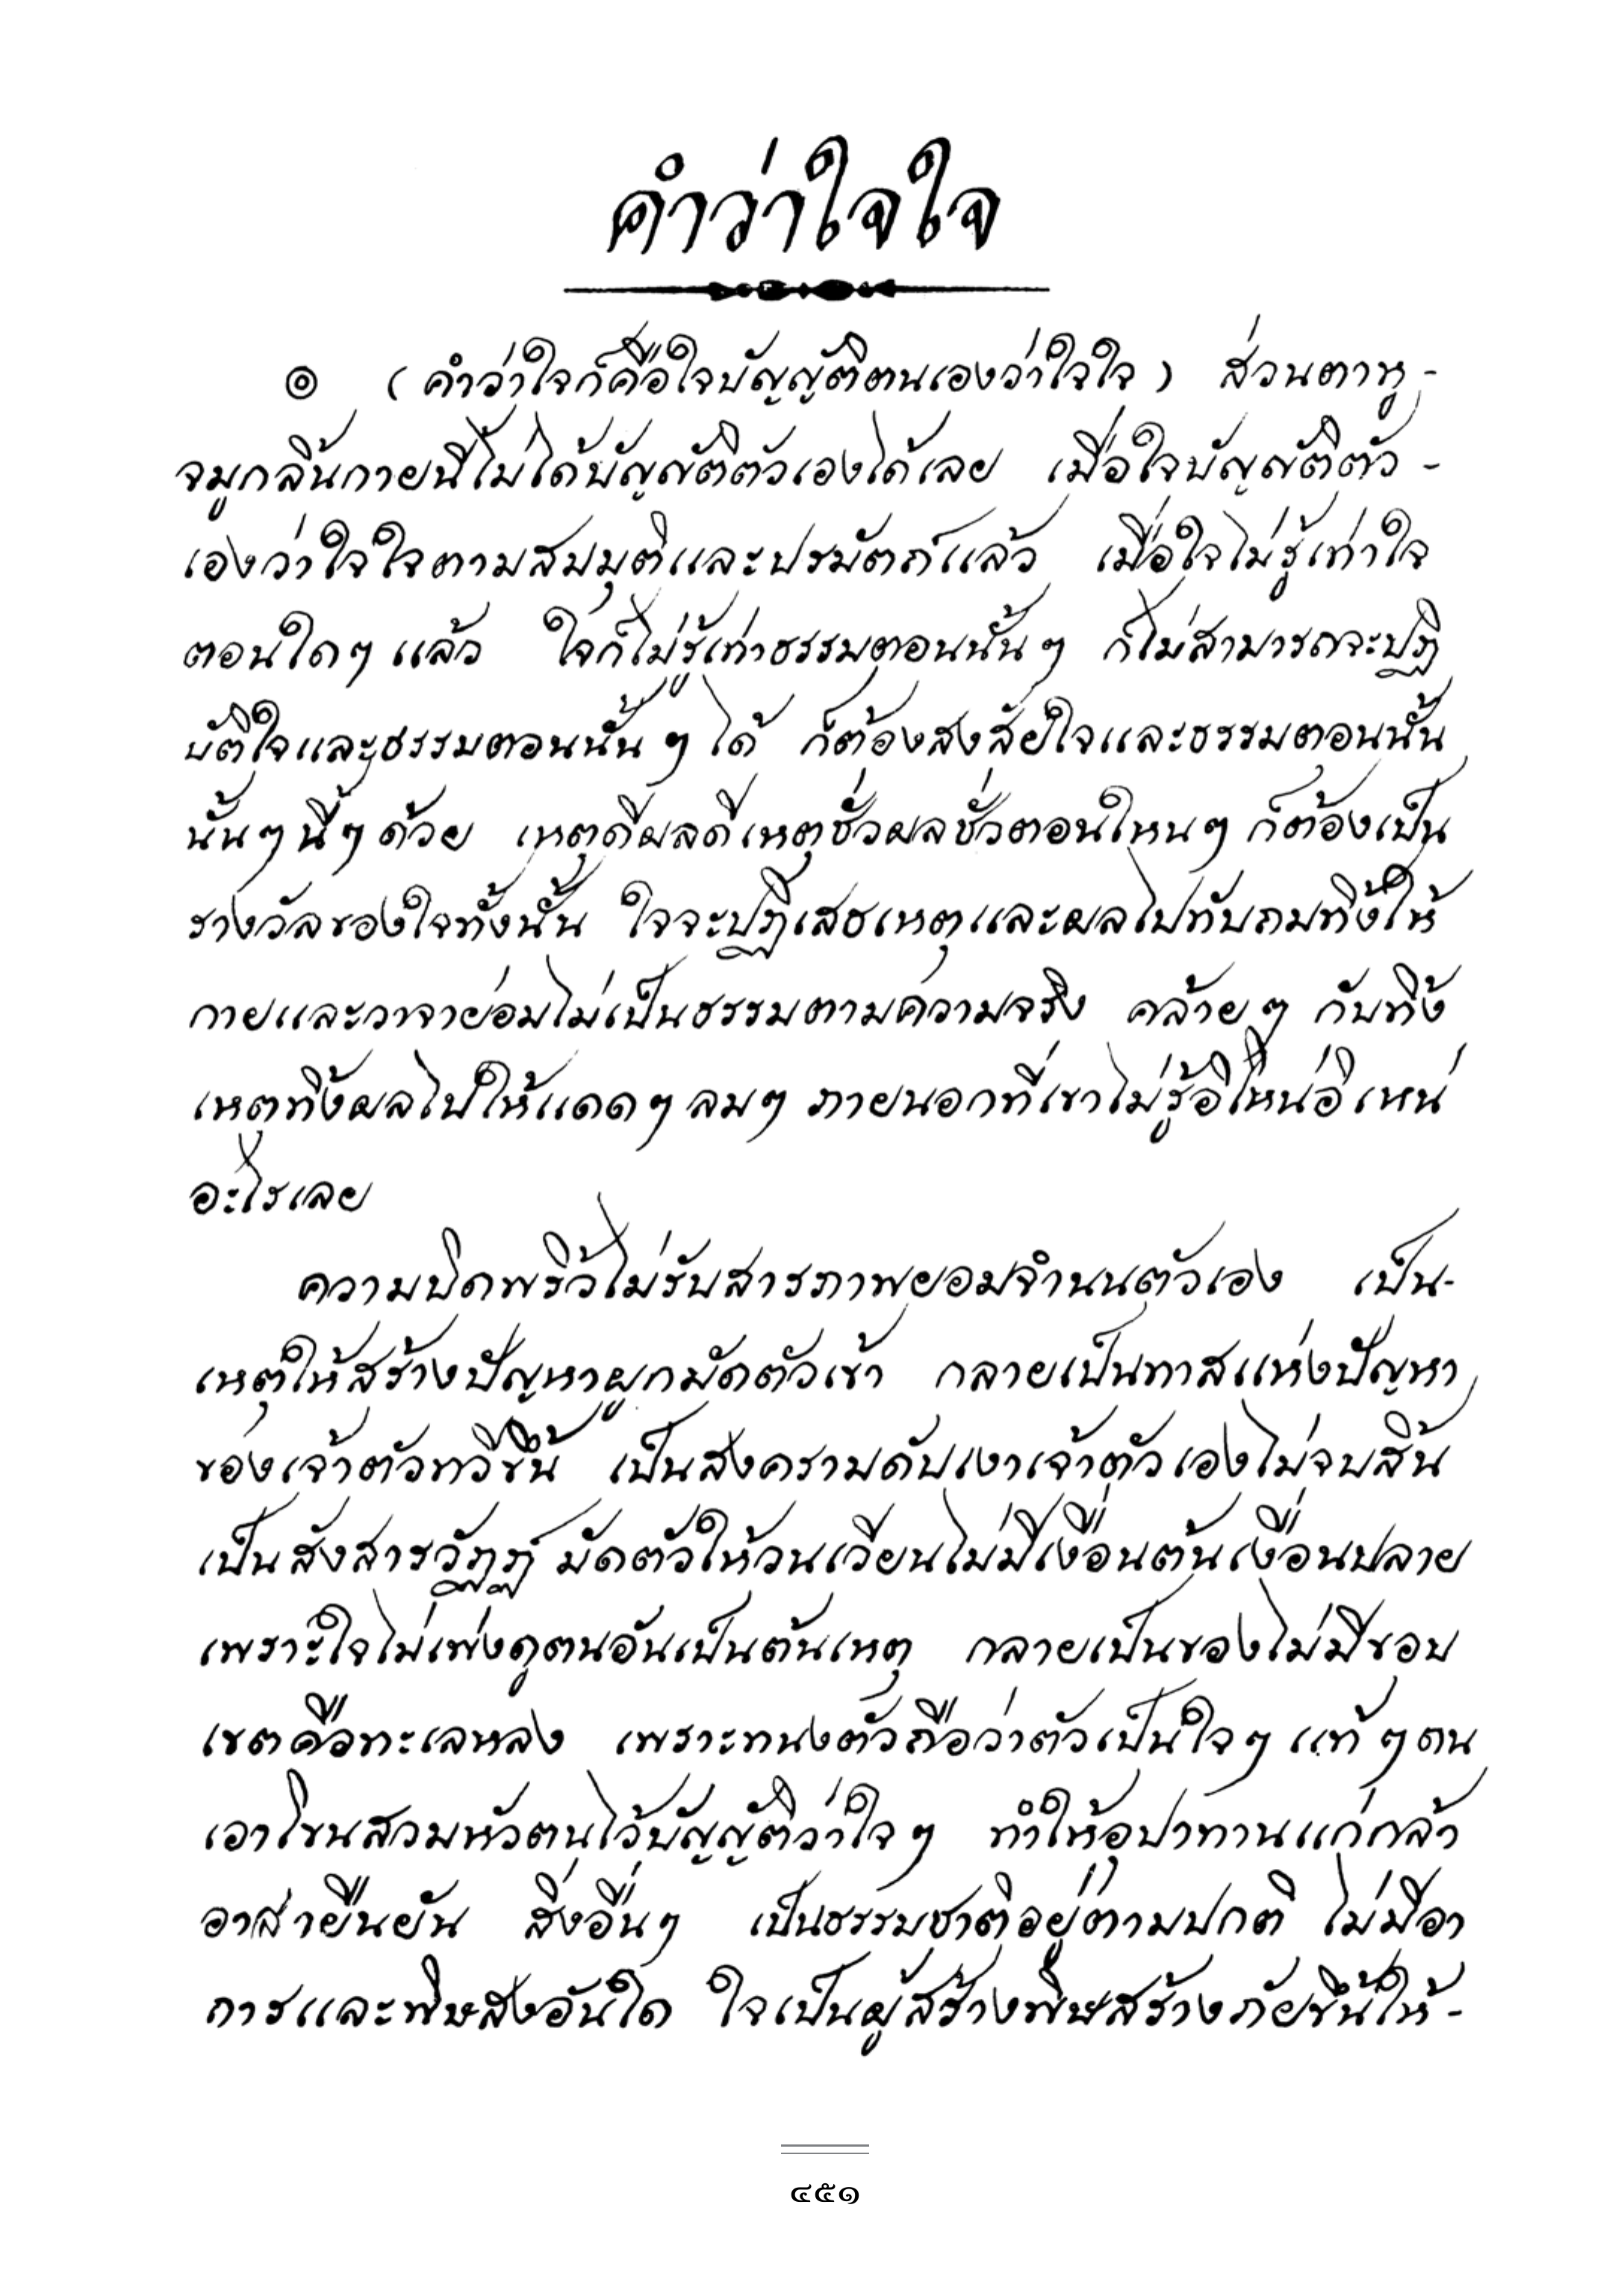 คำว่าใจใจ
๏ (คำว่าใจก็คือใจบัญญัติตนเองว่าใจใจ) ส่วนตาหู-
จมูกลิ้นกายนี้ไม่ได้บัญญัติตัวเองได้เลย เมื่อใจบัญญัติตัว-
เองว่าใจใจตามสมมุติและปรมัตถ์แล้ว เมื่อใจไม่รู้เท่าใจ
ตอนใดๆ แล้ว ใจก็ไม่รู้เท่าธรรมตอนนั้นๆ ก็ไม่สามารถจะปฏิ
บัติใจและธรรมตอนนั้นๆ ได้ ก็ต้องสงสัยใจและธรรมตอนนั้น
นั้นๆ นี้ๆ ด้วย เหตุดีผลดีเหตุชั่วผลชั่วตอนไหนๆ ก็ต้องเป็น
รางวัลของใจทั้งนั้น ใจจะปฏิเสธเหตุและผลไปทับถมทิ้งให้
กายและวาจาย่อมไม่เป็นธรรมตามความจริง คล้ายๆ กับทิ้ง
เหตุทิ้งผลไปให้แดดๆ ลมๆ ภายนอกที่เขาไม่รู้อิโหน่อิเหน่
อะไรเลย
ความบิดพริ้วไม่รับสารภาพยอมจำนนตัวเอง เป็น-
เหตุให้สร้างปัญหาผูกมัดตัวเข้า กลายเป็นทาสแห่งปัญหา
ของเจ้าตัวทวีขึ้น เป็นสงครามดับเงาเจ้าตัวเองไม่จบสิ้น
เป็นสังสารวัฏฏ์ มัดตัวให้วนเวียนไม่มีเงื่อนต้นเงื่อนปลาย
เพราะใจไม่เพ่งดูตนอันเป็นต้นเหตุ กลายเป็นของไม่มีขอบ
เขตคือทะเลหลง เพราะทนงตัวถือว่าตัวเป็นใจๆ แท้ๆ ตน
เอาโขนสวมหัวตนไว้บัญญัติว่าใจๆ ทำให้อุปาทานแก่กล้า
อาสายืนยัน สิ่งอื่นๆ เป็นธรรมชาติอยู่ตามปกติ ไม่มีอา
การและพิษสงอันใด ใจเป็นผู้สร้างพิษสร้างภัยขึ้นให้-
๔๕๑